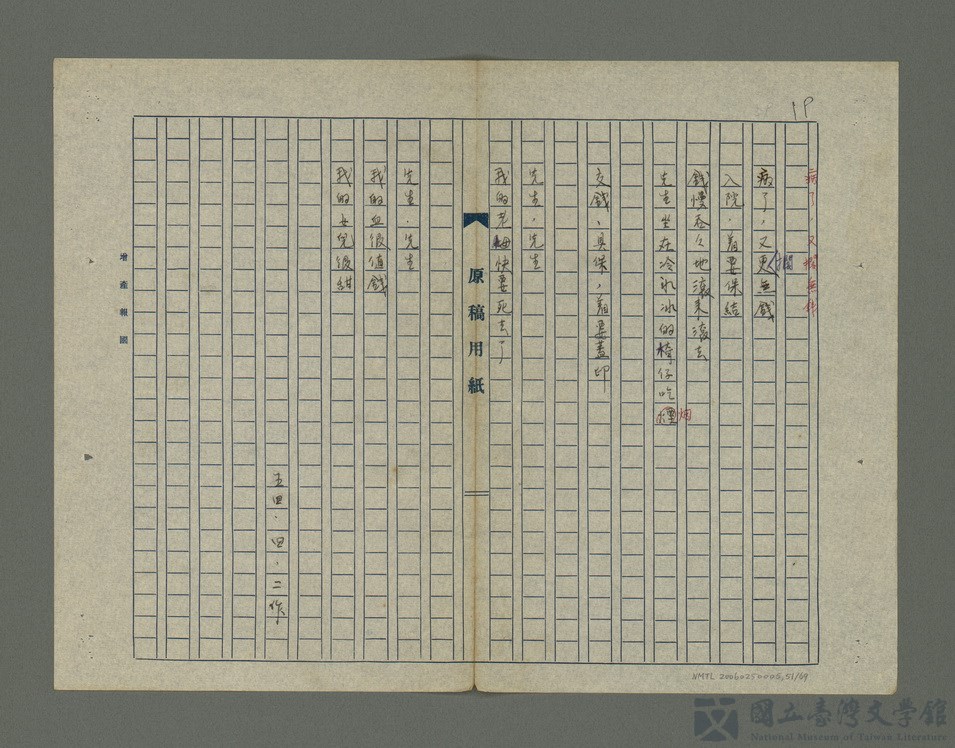 19
病了，又擱無錢
病了，又更無錢
擱
入院，着要保結
錢慢吞吞地滾來滾去
先生坐在冷冰冰的椅仔吃煙
烟
交錢、具保，着要蓋印
先生，先生
我的老母快要死去了
原稿用紙
先生，先生
我的血很值錢
我的女兒很紺
五四．四．二作
增產報國
NMTL 20060250005,51/69
國立臺灣文學館
National Museum of Taiwan Literature